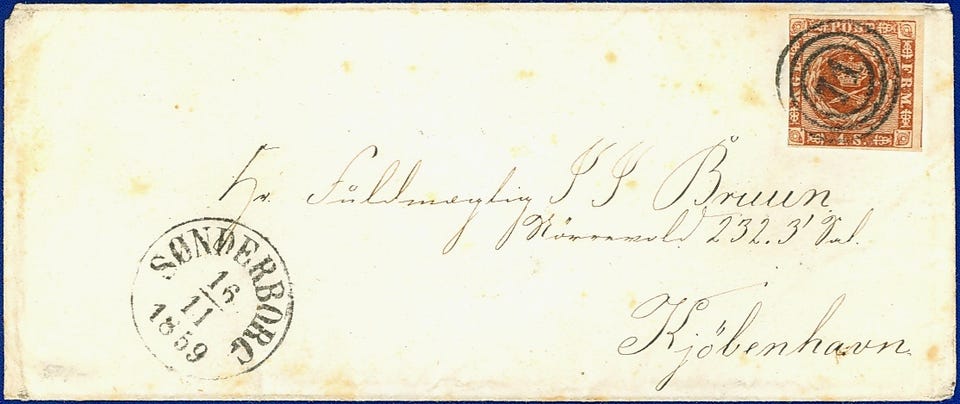 POST
F.R.M.
4 S.
71
Hr. Fuldmægtig I I Bruun
Nörrevold 232. 3' Sal.
Kjöbenhavn.
SØNDERBORG
16
11
1859